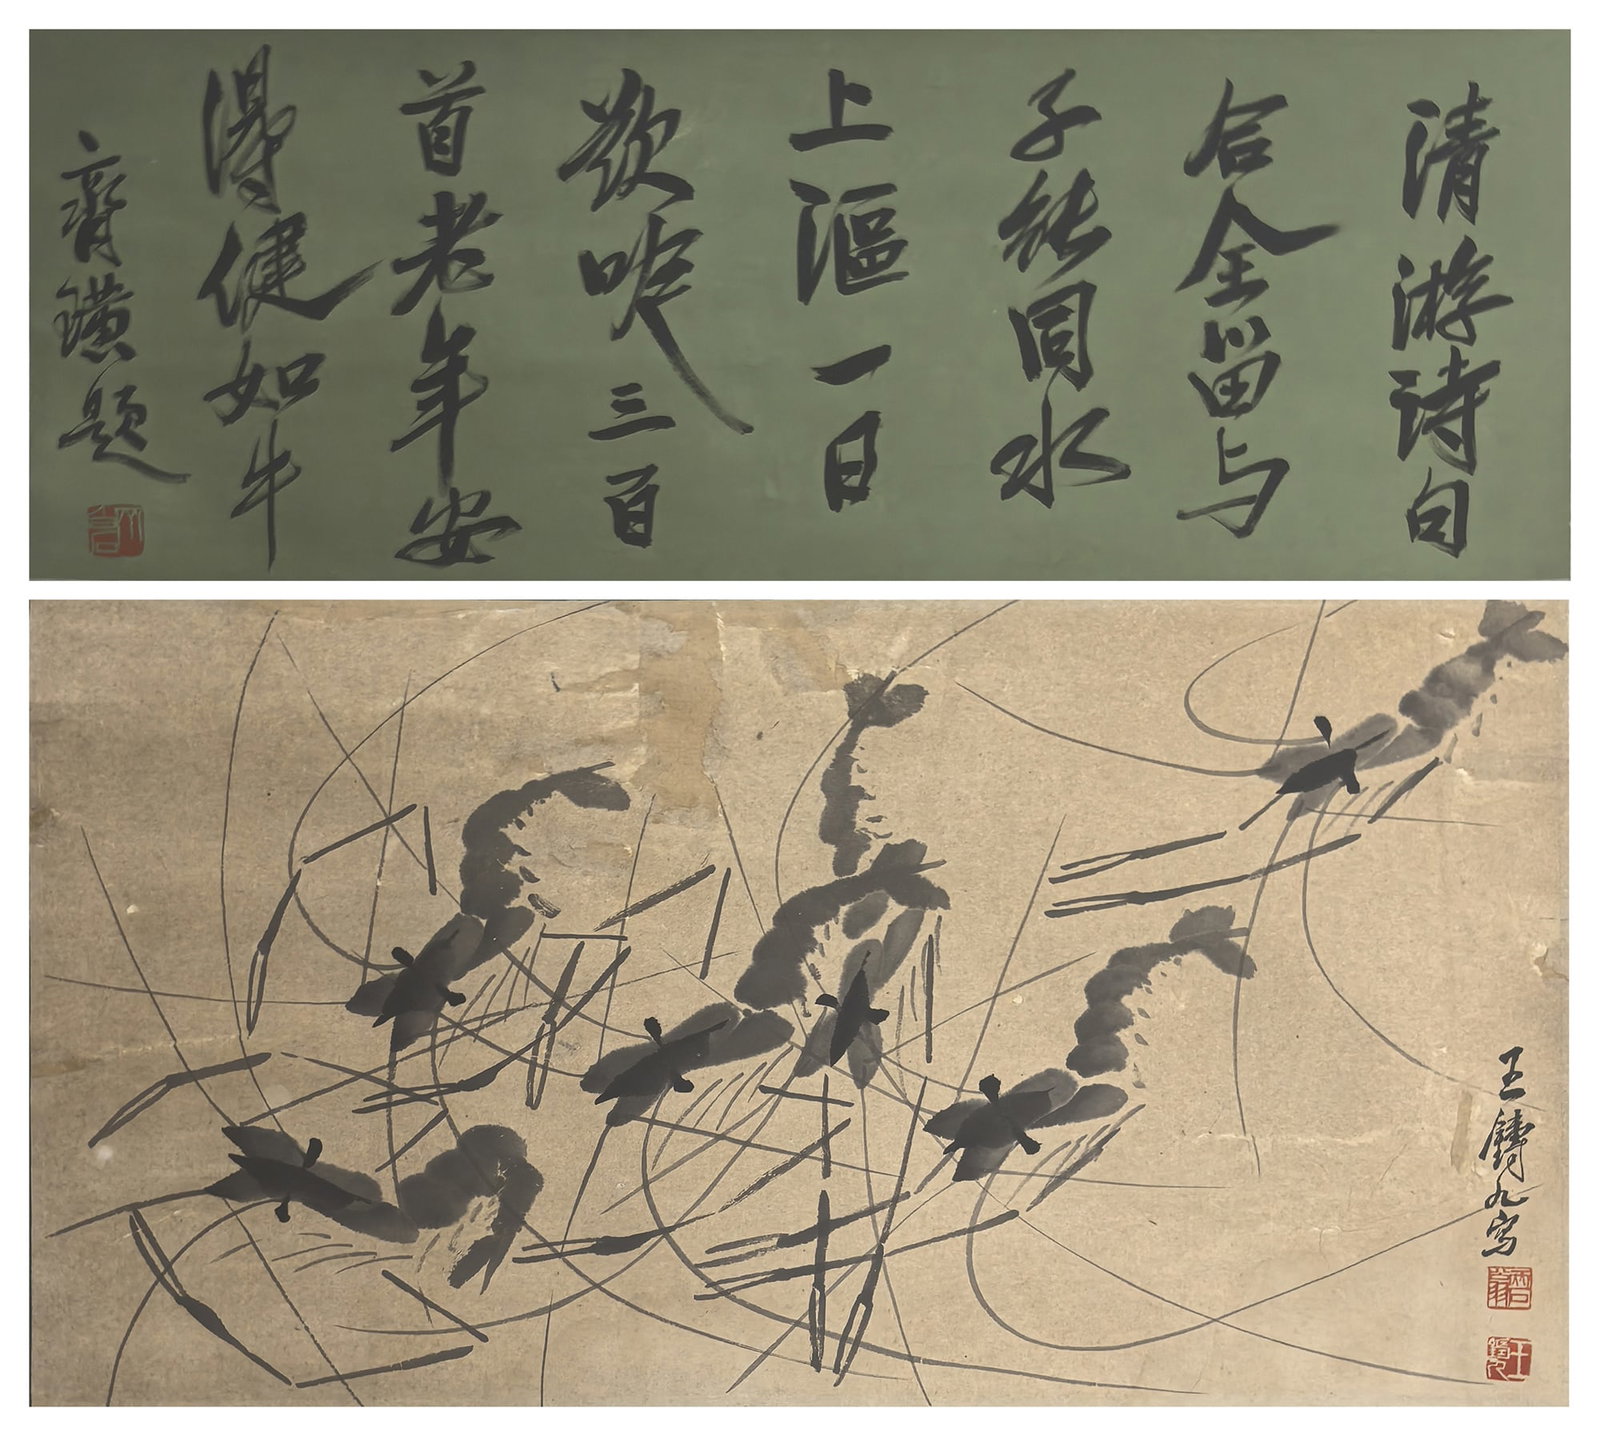 清游诗句
合全留与
子能同水
上漚一日
欲吟三百
首老年安
得健如牛
齊璜題
王鑄九寫